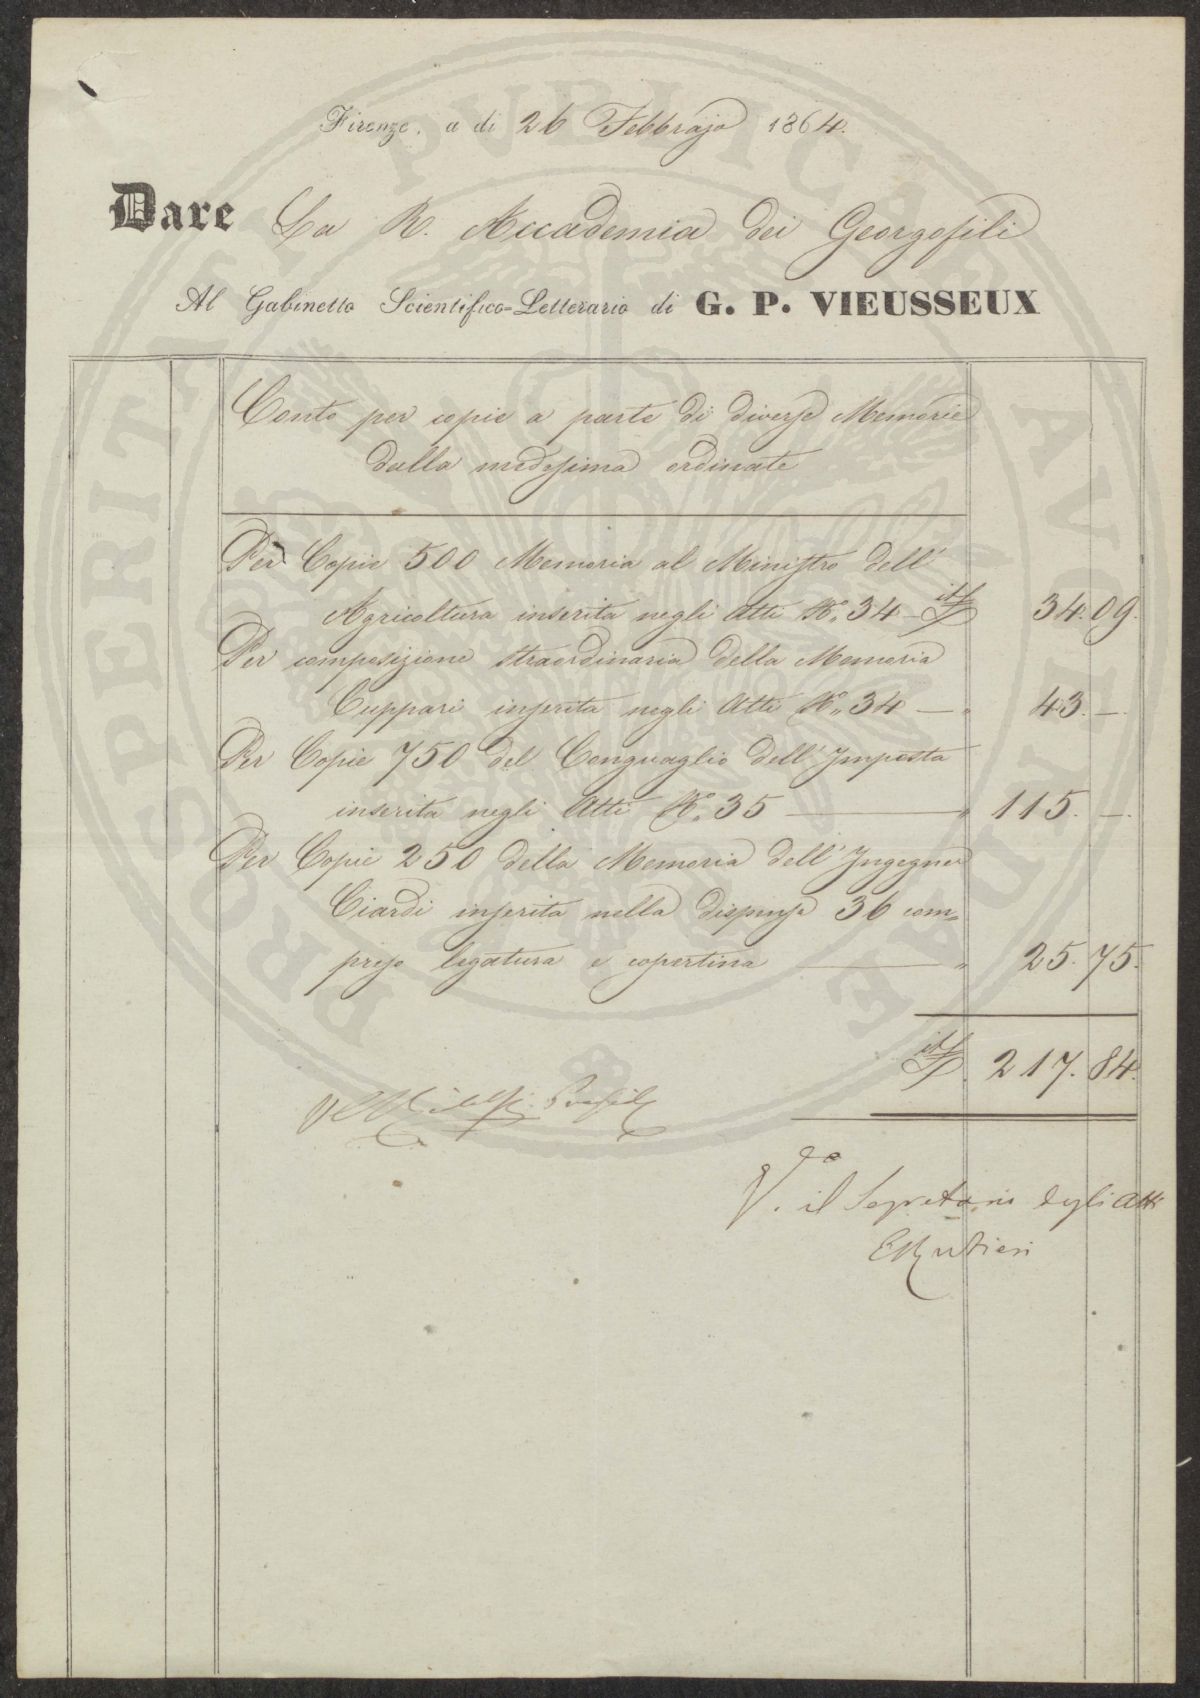 Firenze, a dì 26 Febbrajo 1864.
Dare La R. Accademia dei Georgofili
Al Gabinetto Scientifico-Letterario di G. P. VIEUSSEUX
Conto per copie a parte di diverse Memorie
dalla medesima ordinate
Per Copie 500 Memoria al Ministro dell'
Agricoltura inserita negli Atti N.° 34 — it£ 34. 09.
Per composizione straordinaria della Memoria
Cuppari inserita negli Atti N.° 34 — " 43. —.
Per Copie 750 del Conguaglio dell'Imposta
inserita negli Atti N.° 35 — " 115. —.
Per Copie 250 della Memoria dell'Ingegner
Ciardi inserita nella dispensa 36 com=
preso legatura e copertina — " 25. 75.
it£ 217. 84.
V.° il Segretario degli Atti
PROSPERITATI PUBLICAE AUGENDAE